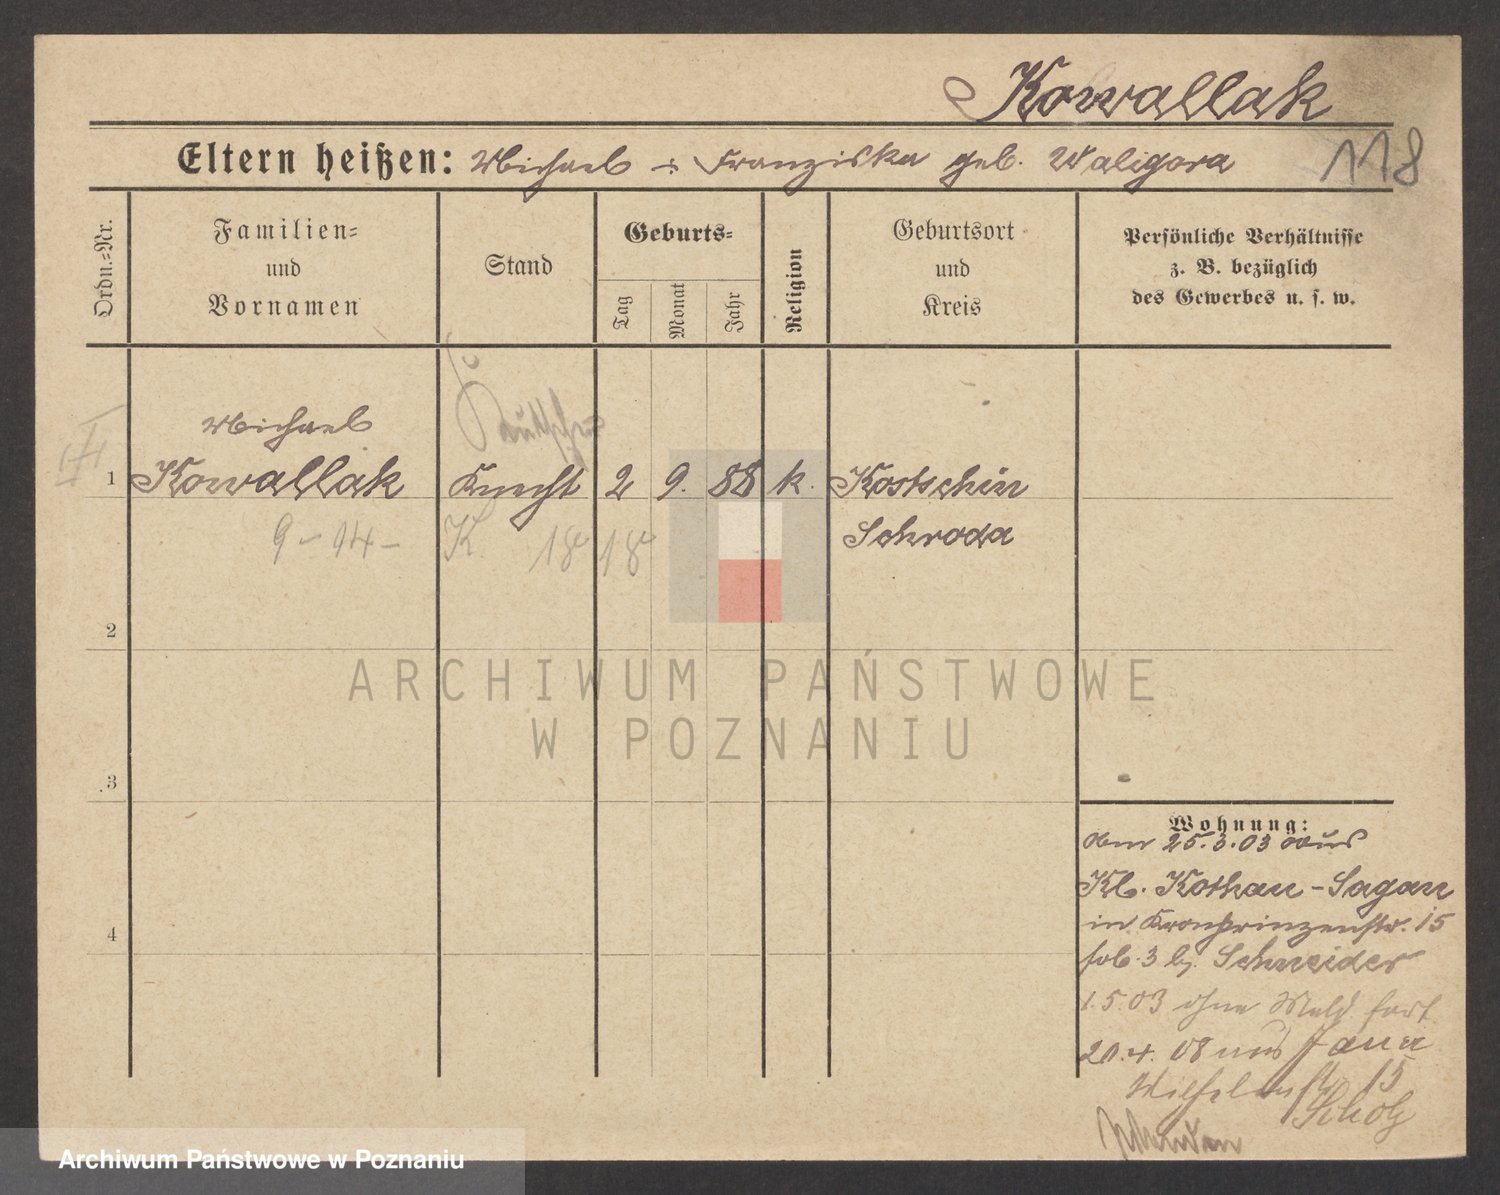 Kowallak
Eltern heißen: Michael u. Franziska geb. Waligora 118
Ordn.=Nr.
Familien=
und
Vornamen
Stand
Geburts=
Tag
Monat
Jahr
Religion
Geburtsort
und
Kreis
Persönliche Verhältnisse
z. B. bezüglich
des Gewerbes u. s. w.
Michael
1 Kowallak Knecht 2 9. 88 k. Kostschin
Schroda
9-14- K. 18 18
2
3
4
ARCHIWUM PAŃSTWOWE
W POZNANIU
Wohnung:
am 25.3.03 aus
Kl. Kothau-Sagan
in Kronprinzenstr. 15
3 b. Schneider
1.5.03 ohne Meld fort
20.4. 08 aus
Wilhelmstr 15
Scholz
Archiwum Państwowe w Poznaniu